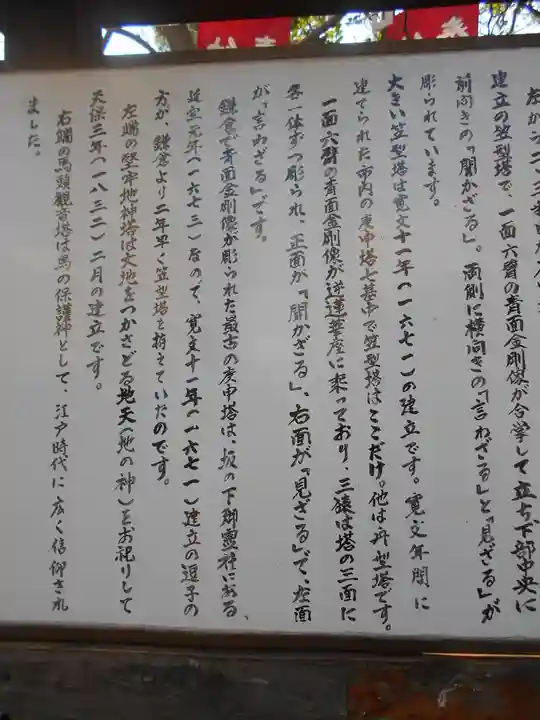 左から二、
建立の笠型塔で、一面六臂の青面金剛像が合掌して立ち、下部中央に
前向きの「聞かざる」。両側に横向きの「言わざる」と「見ざる」が
彫られています。
大きい笠型塔は寛文十一年(一六七一)の建立です。寛文年間に
建てられた市内の庚申塔七基中で笠型塔はここだけ。他は舟型塔です。
一面六臂の青面金剛像が逆蓮華座に乗っており、三猿は塔の三面に
各一体ずつ彫られ、正面が「聞かざる」、右面が「見ざる」で、左面
が、「言わざる」です。
鎌倉で青面金剛像が彫られた最古の庚申塔は、坂の下御霊社にある、
延宝元年(一六七三)なので、寛文十一年(一六七一)建立の逗子の
方が、鎌倉より二年早く笠型塔を持えていたのです。
左端の堅牢地神塔は大地をつかさどる地天(地の神)をお祀りして
天保三年(一八三二)二月の建立です。
右端の馬頭観音塔は馬の保護神として、江戸時代に広く信仰され
ました。